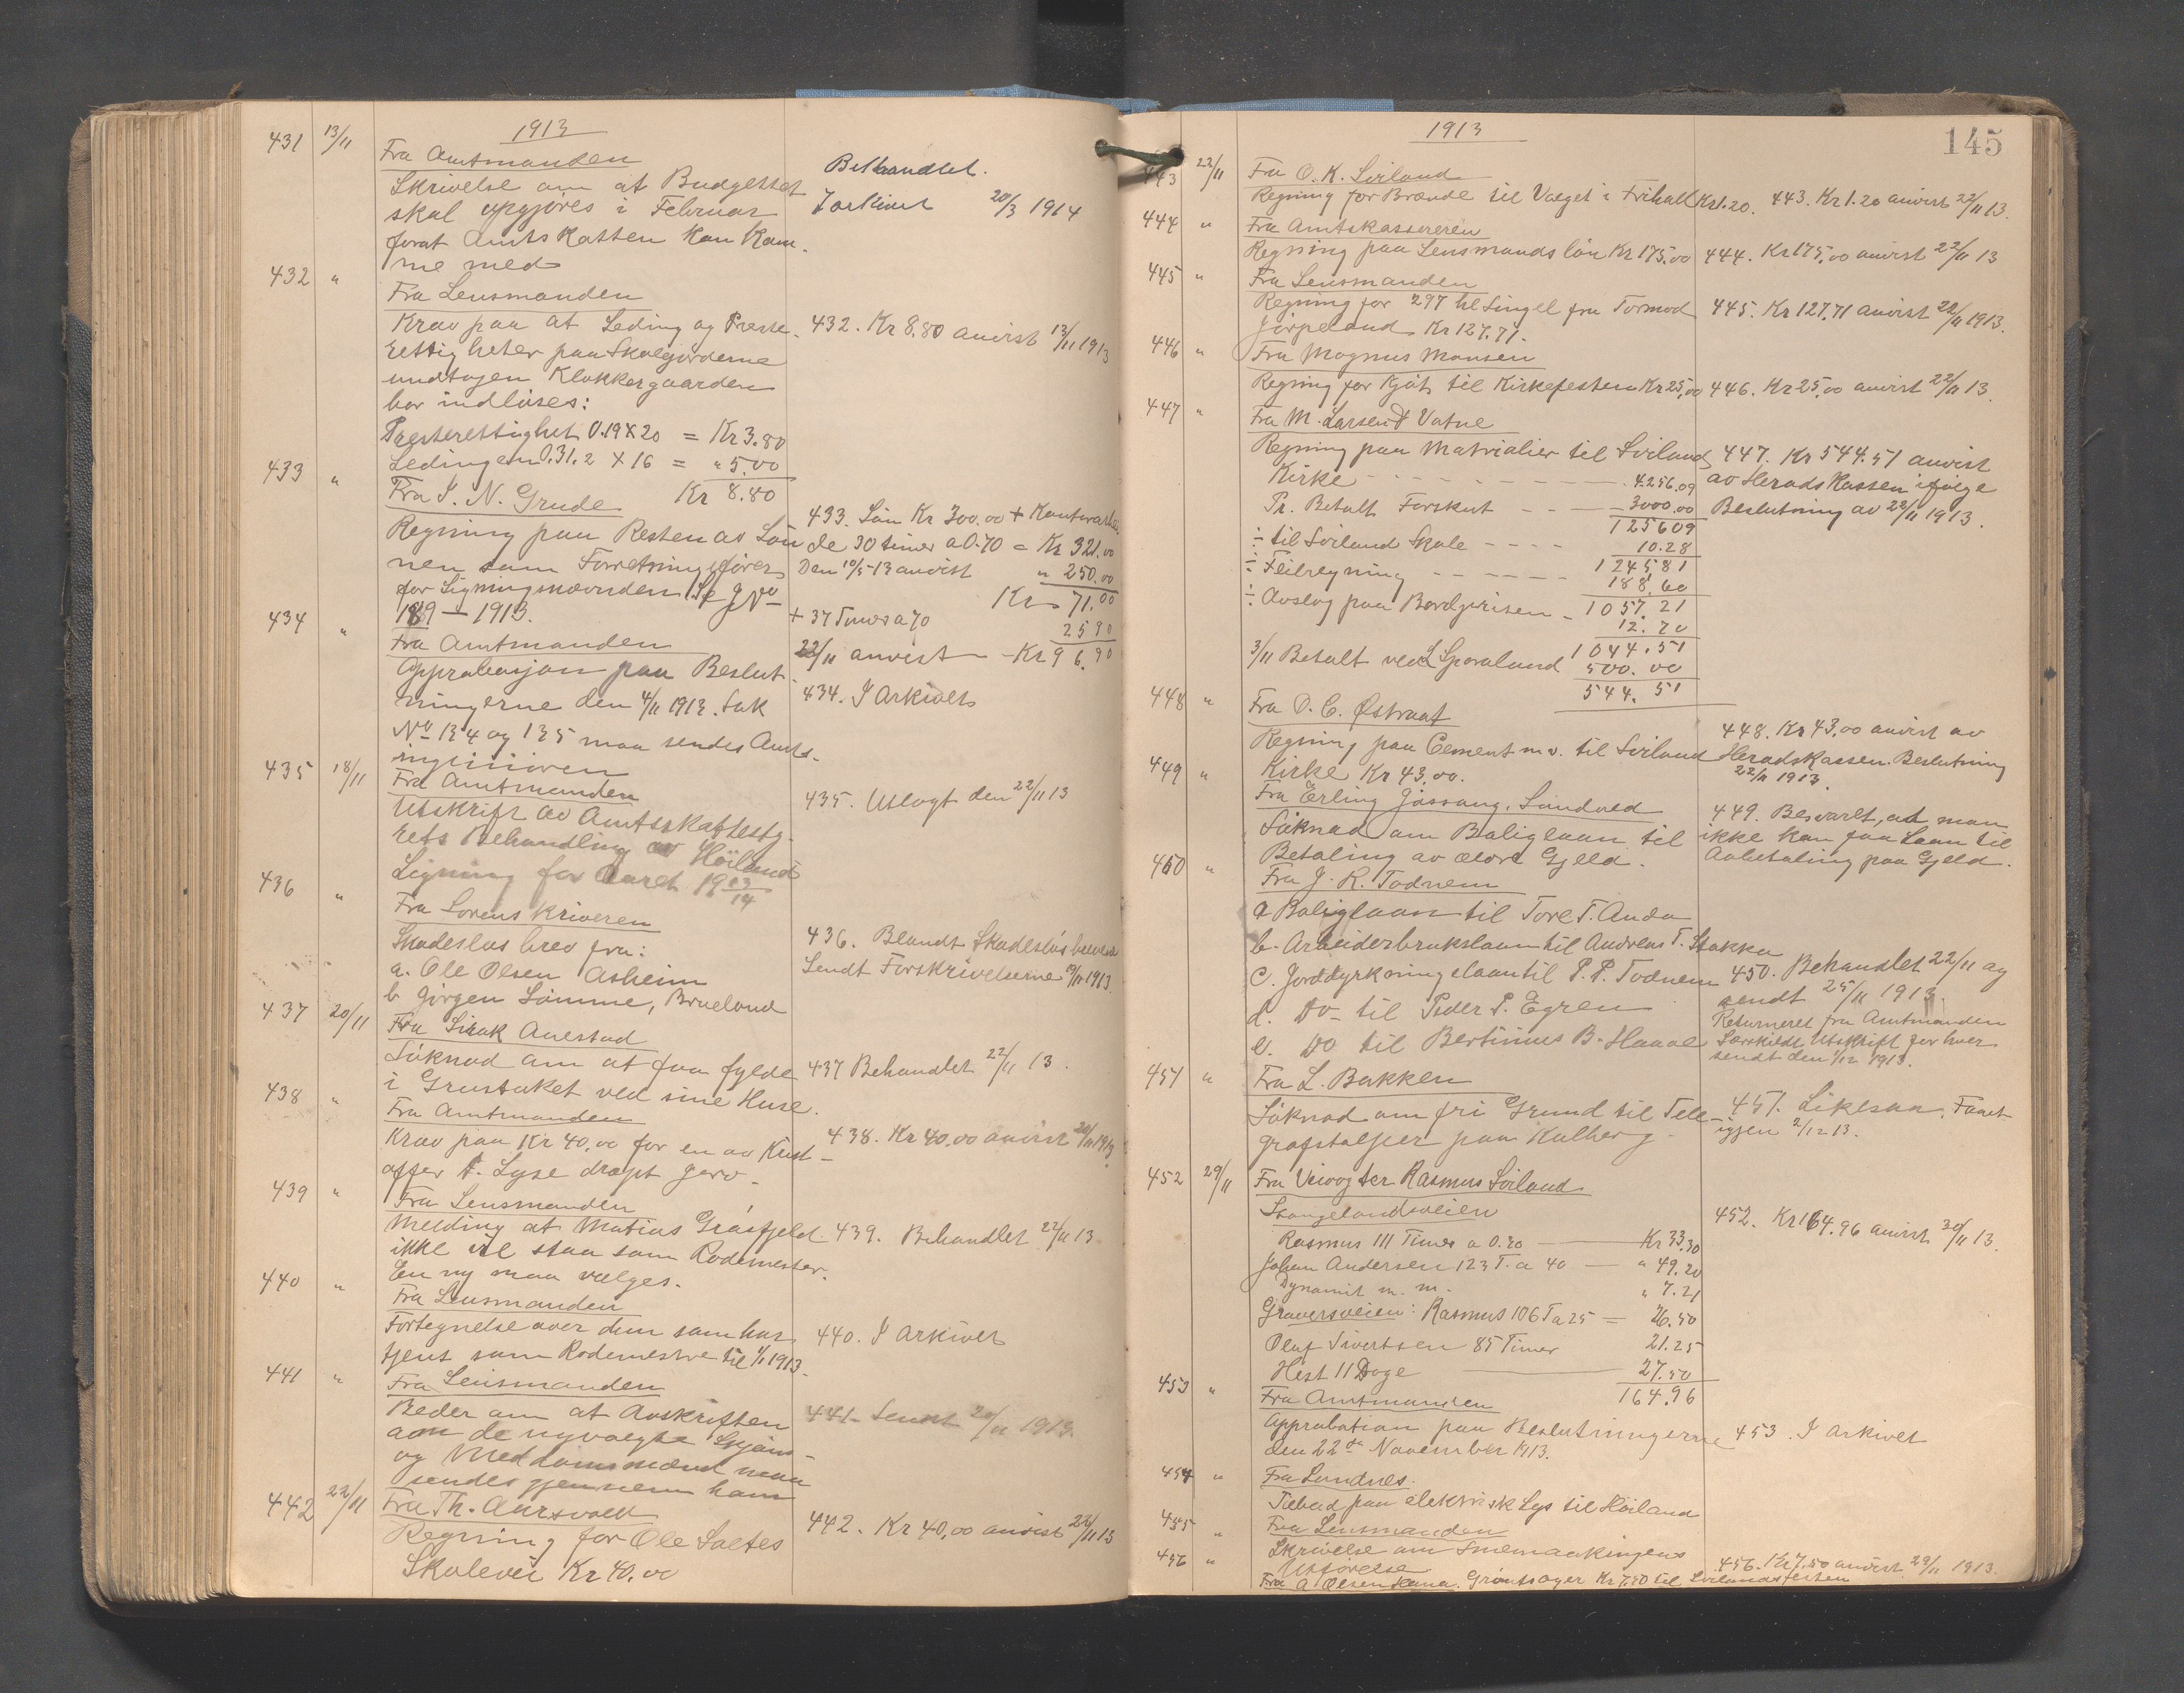 1913
431 13/11 Fra Amtmanden
Skrivelse om at Budgettet
skal opgjöres i Februar
forat Amtskatten kan kom-
me med
Behandlet.
I arkivet 20/3 1914
432 " Fra Lensmanden
Krav paa at Leding og Preste-
rettigheter paa Skolegjorderne
undtagen Klokkergaarden
bør indlöses:
Presterettighet 0.19 X 20 = Kr 3.80
Ledingen 0.31.2 X 16 = " 5.00
Kr 8.80
432. Kr 8.80 anvist 13/11 1913
433 " Fra I. N. Grude
Regning paa Resten av Lön
nen som Forretningsförer
for Ligningsnævnden. Se J No
189 - 1913.
433. Lön Kr 300.00 + Kontorarbei
de 30 timer a 0.70 = Kr 321.00
Den 10/5-13 anvist " 250.00
Kr 71.00
+ 37 Timer a 70 25 90
22/11 anvist - Kr 96.90
434 " Fra Amtmanden
Approbasjon paa Beslut-
ningerne den 4/11 1913. Sak
No 134 og 135 maa sendes Amts-
ingeniören
434. I Arkivets
435 18/11 Fra Amtmanden
Utskrift av Amtsskattesty-
rets Behandling av Höilands
Ligning for Aaret 1913/14
435. Utlagt den 22/11 13
436 " Fra Sorenskriveren
Skadeslös brev fra:
a. Ole Olsen Asheim
b Jörgen Sömme, Brueland
436. Blandt Skadeslösbrevene
Sendt Forskrivelserne /11 1913.
437 20/11 Fra Sirak Auestad
Söknad om at faa fylde
i Grustaket ved sine Huse.
437 Behandlet 22/11 13.
438 " Fra Amtmanden
Krav paa Kr 40,00 for en av Krist-
offer T. Lyse dræpt Jerv-
438. Kr 40,00 anvist 20/11 1913
439 " Fra Lensmanden
Melding at Matias Gråsfjeld
ikke vil staa som Rodemester.
En ny maa vælges.
439. Behandlet 22/11 13
440 " Fra Lensmanden
Fortegnelse over dem som har
tjent som Rodemestre til 1/1 1913
440. I Arkivet
441 " Fra Lensmanden
Beder om at Avskriften
om de nyvalgte Skjöns-
og Meddomsmænd maa
sendes gjennem ham
441. Sendt 20/11 1913.
442 22/11 Fra Th. Aursvoll
Regning for Ole Saltes
Skolevei Kr 40.00
442. Kr 40,00 anvist 22/11 13
1913
145
443 22/11 Fra O. K. Soiland
Regning for Brænde til Valget i Frihall Kr 1.20.
443. Kr 1.20 anvist 22/11 13.
444 " Fra Amtskassereren
Regning paa Lensmandslön Kr 175.00
444. Kr 175,00 anvist 22/11 13
445 " Fra Lensmanden
Regning for 297 hl Singel fra Tormod
Jörpeland Kr 127.71.
445. Kr 127,71 anvist 22/11 1913.
446 " Fra Magnus Monsen
Regning for Kjöt til Kirkefesten Kr 25,00
446. Kr 25,00 anvist 22/11 13.
447 " Fra M. Larsen & Vatne
Regning paa Matrialier til Soiland
Kirke 4256.09
Pr. Betalt Forskut 3000.00
125609
÷ til Soiland Skole 10.28
124581
÷ Feilregning 188.60
÷ Avslag paa Bordprisen 1057.21
12.70
1044.51
3/11 Betalt ved Sporaland 500.00
544.51
447. Kr 544.51 anvist
av Herads Kassen ifölge
Beslutning av 22/11 1913.
448 " Fra O. C. Østraat
Regning paa Cement m.v. til Soiland
Kirke Kr 43,00.
448. Kr 43,00 anvist av
Heradskassen. Beslutning
22/11 1913.
449 " Fra Erling Jåssang, Sandved
Söknad om Boliglaan til
Betaling av ældre Gjeld.
449. Besvart, at man
ikke kan faa Laan til
Avbetaling paa Gjeld.
450 " Fra J. R. Todnem
a Boliglaan til Tore T. Anda
b. Arbeiderbrukslaan til Andreas T. Stokka
c. Jorddyrkningslaan til P. P. Todnem
d. Do- til Peder P. Egren
e. Do til Bertinius B. Haave
450. Behandlet 22/11 og
sendt 25/11 1913.
Returneret fra Amtmanden
Særskildt Utskrift for hver
sendt den 1/12 1913.
451 " Fra L. Bakken
Söknad om fri Grund til Tele-
grafstolper paa Kolberg-
451. Likesaa. Faaet
igjen 2/12 13.
452 29/11 Fra Veivogter Rasmus Soiland
Stangelandsveien
Rasmus 111 Timer a 0.30 Kr 33.30
Johan Andersen 123 T. a 40 " 49.20
Dynamit m. m. " 7.21
Graversveien: Rasmus 106 T a 25 = 26.50
Oluf Sivertsen 85 Timer 21.25
Hest 11 Dage 27.50
164.96
452. Kr 164.96 anvist 30/11 13.
453 " Fra Amtmanden
Approbation paa Beslutningerne
den 22de November 1913.
453. I arkivet
454 " Fra Sandnes.
Tilbud paa elektrisk Lys til Höiland
455 " Fra Lensmanden
Skrivelse om Snemaakingens
Utförelse
456 " Fra A Olsen Hana. Gröntsager Kr 7.50 til Soilandsfesten
456. Kr 7.50 anvist 29/11 1913.